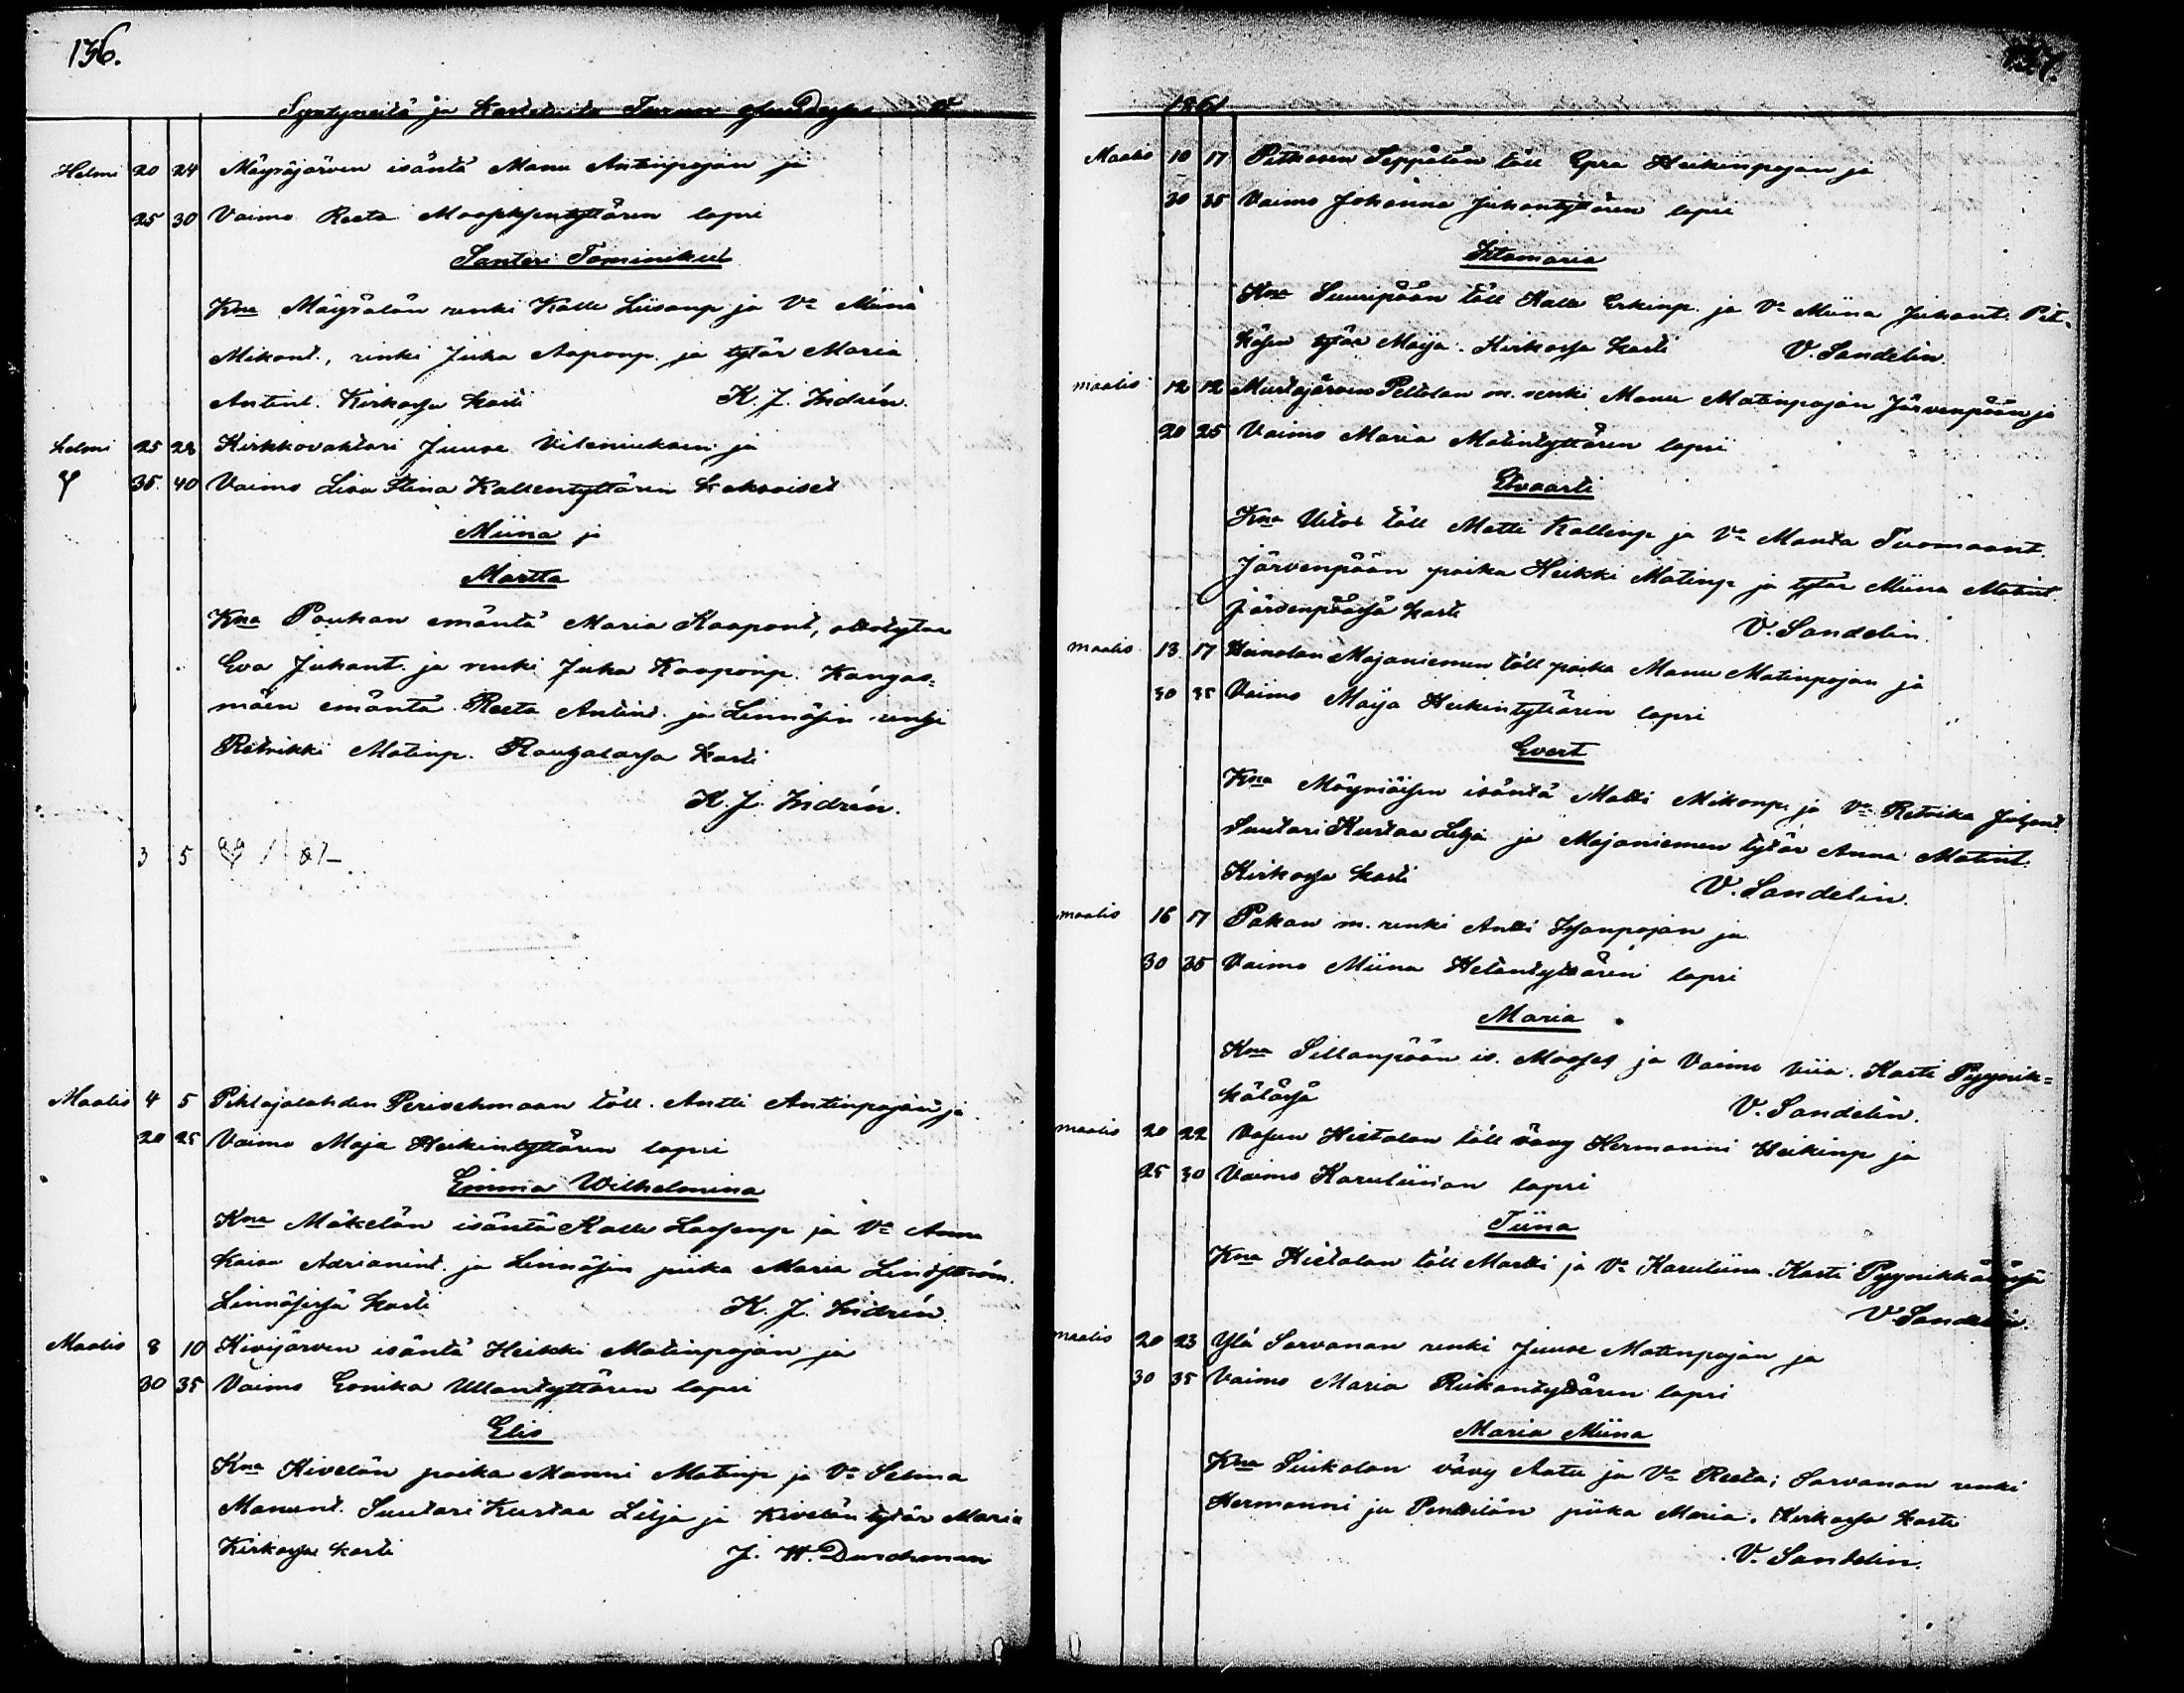 136.
Syntyneitä ja Kastet
Helmi 20 24 Mäyräjärven isäntä Manu Antinpojan ja
25 30 Vaimo Reeta Mooseksentyttären lapsi
Santeri Tominikus
Kna Mäyrälän renki Kalle Liisanp ja Vo Miina
Mikont., renki Juha Aaponp. ja tytär Maria
Antint. Kirkossa kasti K. J. Indrén.
helmi 25 28 Kirkkovahtari Juuse Vileniuksen ja
35 40 Vaimo Lisa Stina Kallentyttären kaksoiset
Miina ja
Martta
Kna Pouhan emäntä Maria Kaapont, ottotytar
Eva Juhant. ja renki Juha Kaaponp. Kangas=
mäen emäntä Reeta Antint. ja Linnäsin renki
Retrikki Matinp. Rautalassa kasti
K. J. Indrén.
3 5
Maalis 4 5 Pihlajalahden Perischmaan töll. Antti Antinpojan ja
20 25 Vaimo Maja Heikintyttären lapsi
Emma Wilhelmina
Kna Mäkelän isäntä Kalle Lassenp ja Vo Anna
Kaisa Adrianint. ja Linnäsin piika Maria Lindström.
Linnäsissä kasti K. J. Indrén.
Maalis 8 10 Kivijärven isäntä Heikki Matinpojan ja
30 35 Vaimo Eonika Ullantyttären lapsi
Elis
Kna Kivelän poika Manni Matinp ja Vo Selma
Manunt. Suutari Kustaa Lilja ja Kivelän tytär Maria
Kirkossa kasti J. W. Durchman
1861
Maalis 10 17 Pitkäsen Seppälän töll Epra Heikinpojan ja
30 35 Vaimo Johanna Juhantyttären lapsi
Iitamaria
Kna Suuripään töll Kalle Erkinp. ja Vo Miina Juhant. Pit=
käsen tytär Maija. Kirkossa kasti V. Sandelin.
maalis 12 12 Mustajärven Peltolan m. renki Manu Matinpojan Järvenpään ja
20 25 Vaimo Maria Matintyttären lapsi
Etvaarti
Kna Uitos töll Matti Kallenp ja Vo Manta Tuomaant.
Järvenpään poika Heikki Matinp ja tytär Miina Matint.
järvenpäässä kasti V. Sandelin.
maalis 13 17 Heinolan Majaniemen töll poika Manu Matinpojan ja
30 35 Vaimo Maija Heikintyttären lapsi
Evert
Kna Mäyriäisen isäntä Matti Mikonp ja Vo Retrika Juhant
Suutari Kustaa Lilja ja Majaniemen tytär Anna Matint.
Kirkossa kasti V. Sandelin.
maalis 16 17 Pakan m. renki Antti ja
30 35 Vaimo Miina Hetantyttären lapsi
Maria
Kna Sillanpään is. Mooses ja Vaimo Viia. Kasti Pyynik=
kälässä V. Sandelin.
maalis 20 22 Vasun Hietalan töll vävy Hermanni Heikinp ja
25 30 Vaimo Karuliinan lapsi
Tiina
Kna Hietalan töll Martti ja Vo Karuliina. Kasti Pyynikkälässä
V. Sandelin.
maalis 20 23 Ylä Sarvanan renki Juuse Matinpojan ja
30 35 Vaimo Maria Riikantyttären lapsi
Maria Miina
Kna Siukolan vävy Aatu ja Vo Reeta; Sarvanan renki
Hermanni ja Penttilän piika Maria. Kirkossa kasti
V. Sandelin.